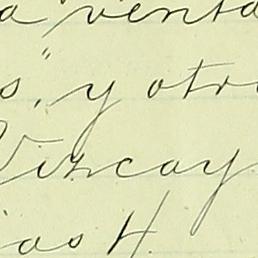 a venta
s", y otr
Vizcay
ias H.